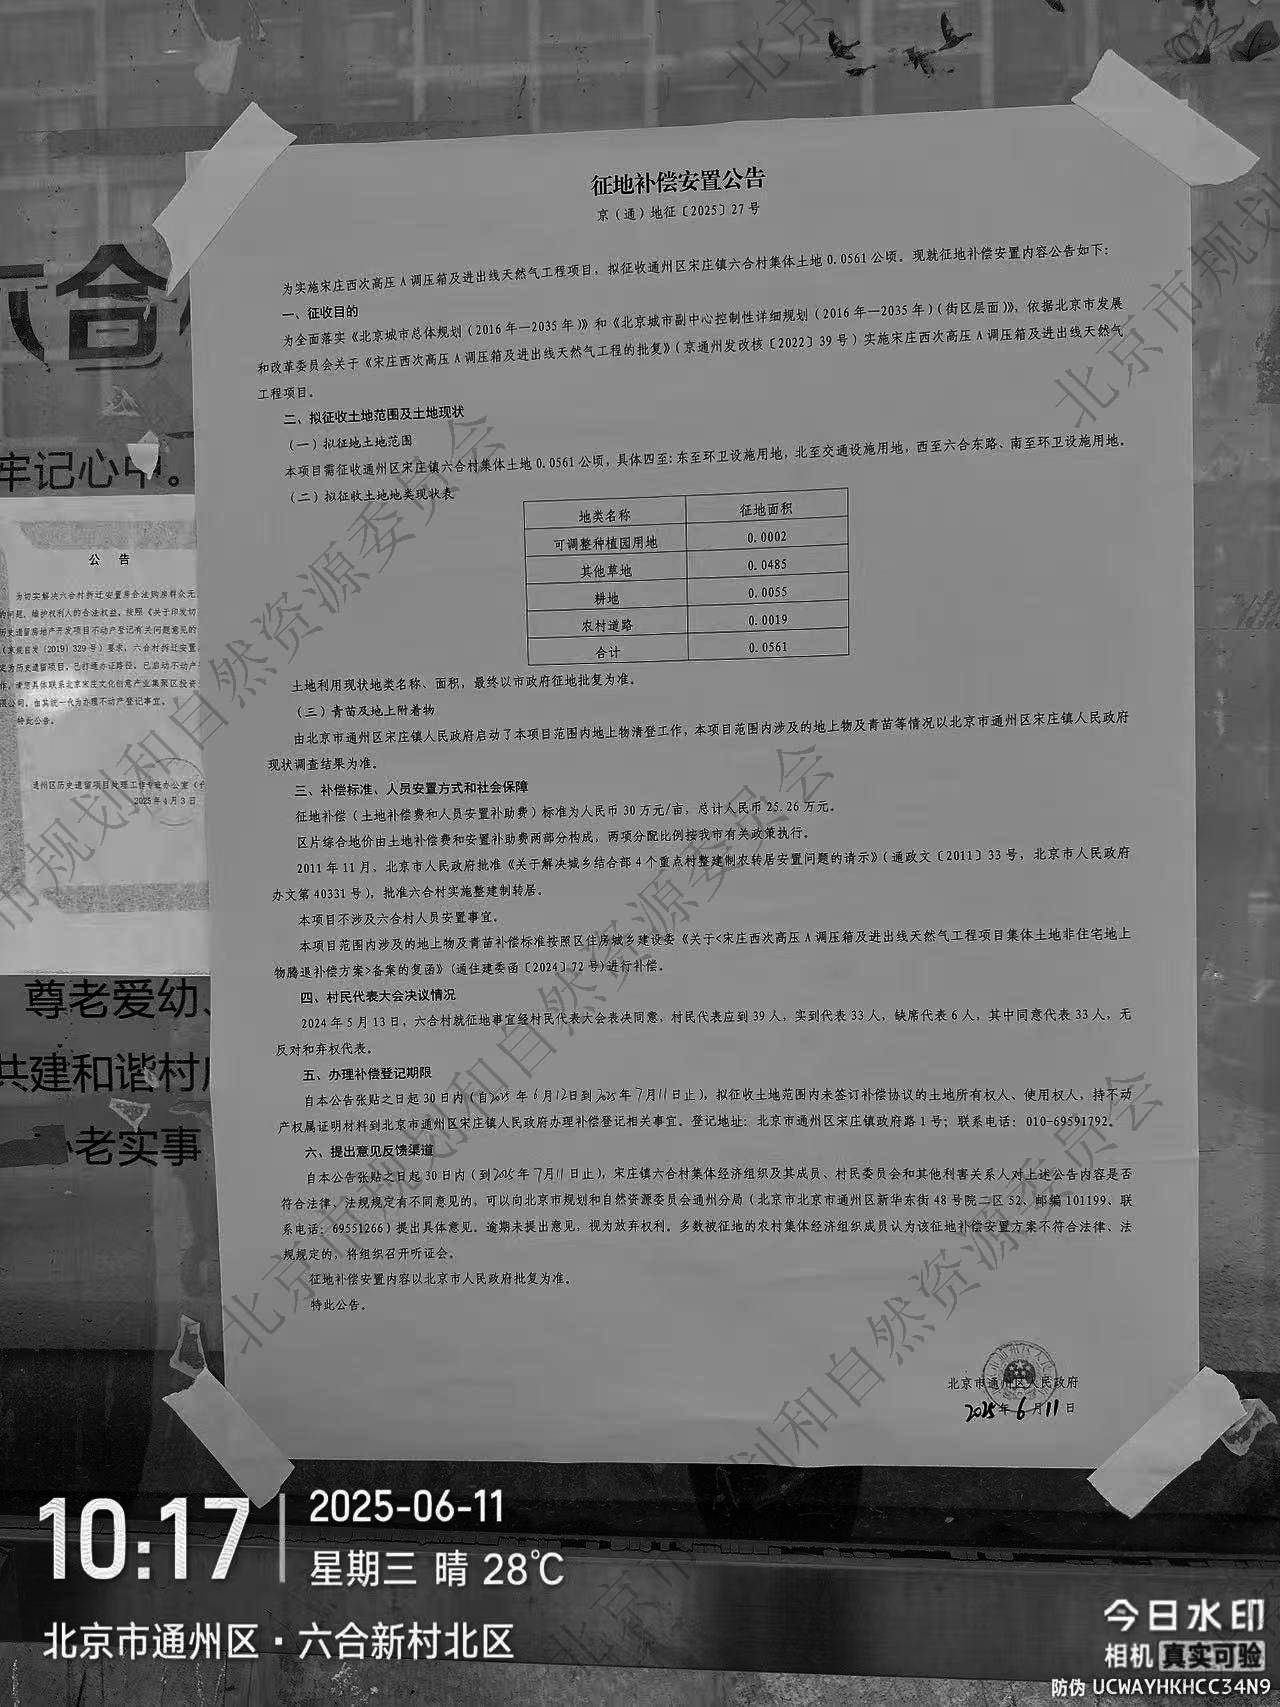 征地补偿安置公告
京（通）地征〔2025〕27号
为实施宋庄西次高压A调压箱及进出线天然气工程项目，拟征收通州区宋庄镇六合村集体土地0.0561公顷。现就征地补偿安置内容公告如下：
一、征收目的
为全面落实《北京城市总体规划（2016年—2035年）》和《北京城市副中心控制性详细规划（2016年—2035年）（街区层面）》，依据北京市发展
和改革委员会关于《宋庄西次高压A调压箱及进出线天然气工程的批复》（京通州发改核〔2022〕39号）实施宋庄西次高压A调压箱及进出线天然气
工程项目。
二、拟征收土地范围及土地现状
（一）拟征地土地范围
本项目需征收通州区宋庄镇六合村集体土地0.0561公顷，具体四至：东至环卫设施用地，北至交通设施用地，西至六合东路、南至环卫设施用地。
（二）拟征收土地地类现状表
地类名称 征地面积
可调整种植园用地 0.0002
其他草地 0.0485
耕地 0.0055
农村道路 0.0019
合计 0.0561
土地利用现状地类名称、面积，最终以市政府征地批复为准。
（三）青苗及地上附着物
由北京市通州区宋庄镇人民政府启动了本项目范围内地上物清登工作，本项目范围内涉及的地上物及青苗等情况以北京市通州区宋庄镇人民政府
现状调查结果为准。
三、补偿标准、人员安置方式和社会保障
征地补偿（土地补偿费和人员安置补助费）标准为人民币30万元/亩，总计人民币25.26万元。
区片综合地价由土地补偿费和安置补助费两部分构成，两项分配比例按我市有关政策执行。
2011年11月，北京市人民政府批准《关于解决城乡结合部4个重点村整建制农转居安置问题的请示》（通政文〔2011〕33号，北京市人民政府
办文第40331号），批准六合村实施整建制转居。
本项目不涉及六合村人员安置事宜。
本项目范围内涉及的地上物及青苗补偿标准按照区住房城乡建设委《关于<宋庄西次高压A调压箱及进出线天然气工程项目集体土地非住宅地上
物腾退补偿方案>备案的复函》（通住建委函〔2024〕72号）进行补偿。
四、村民代表大会决议情况
2024年5月13日，六合村就征地事宜经村民代表大会表决同意，村民代表应到39人，实到代表33人，缺席代表6人，其中同意代表33人，无
反对和弃权代表。
五、办理补偿登记期限
自本公告张贴之日起30日内（自2025年6月12日到2025年7月11日止），拟征收土地范围内未签订补偿协议的土地所有权人、使用权人，持不动
产权属证明材料到北京市通州区宋庄镇人民政府办理补偿登记相关事宜。登记地址：北京市通州区宋庄镇政府路1号；联系电话：010-69591792。
六、提出意见反馈渠道
自本公告张贴之日起30日内（到2025年7月11日止），宋庄镇六合村集体经济组织及其成员、村民委员会和其他利害关系人对上述公告内容是否
符合法律、法规规定有不同意见的，可以向北京市规划和自然资源委员会通州分局（北京市北京市通州区新华东街48号院二区52、邮编101199、联
系电话：69551266）提出具体意见。逾期未提出意见，视为放弃权利。多数被征地的农村集体经济组织成员认为该征地补偿安置方案不符合法律、法
规规定的，将组织召开听证会。
征地补偿安置内容以北京市人民政府批复为准。
特此公告。
北京市通州区人民政府
2025年6月11日
六合
牢记心中。
公 告
为切实解决六合村拆迁安置房合法购房群众无
的问题，维护权利人的合法权益，按照《关于印发切
历史遗留房地产开发项目不动产登记有关问题意见的
（京规自发〔2019〕329号）要求，六合村拆迁安置
定为历史遗留项目，已打通办证路径，已启动不动产
作，请您具体联系北京宋庄文化创意产业集聚区投资
限公司，由其统一代为办理不动产登记事宜。
特此公告。
通州区历史遗留项目处理工作专班办公室（代
2025年4月3日
尊老爱幼、
共建和谐村
老实事
北京市规划和自然资源委员会
10:17
2025-06-11
星期三 晴 28℃
北京市通州区·六合新村北区
今日水印
相机 真实可验
防伪 UCWAYHKHCC34N9